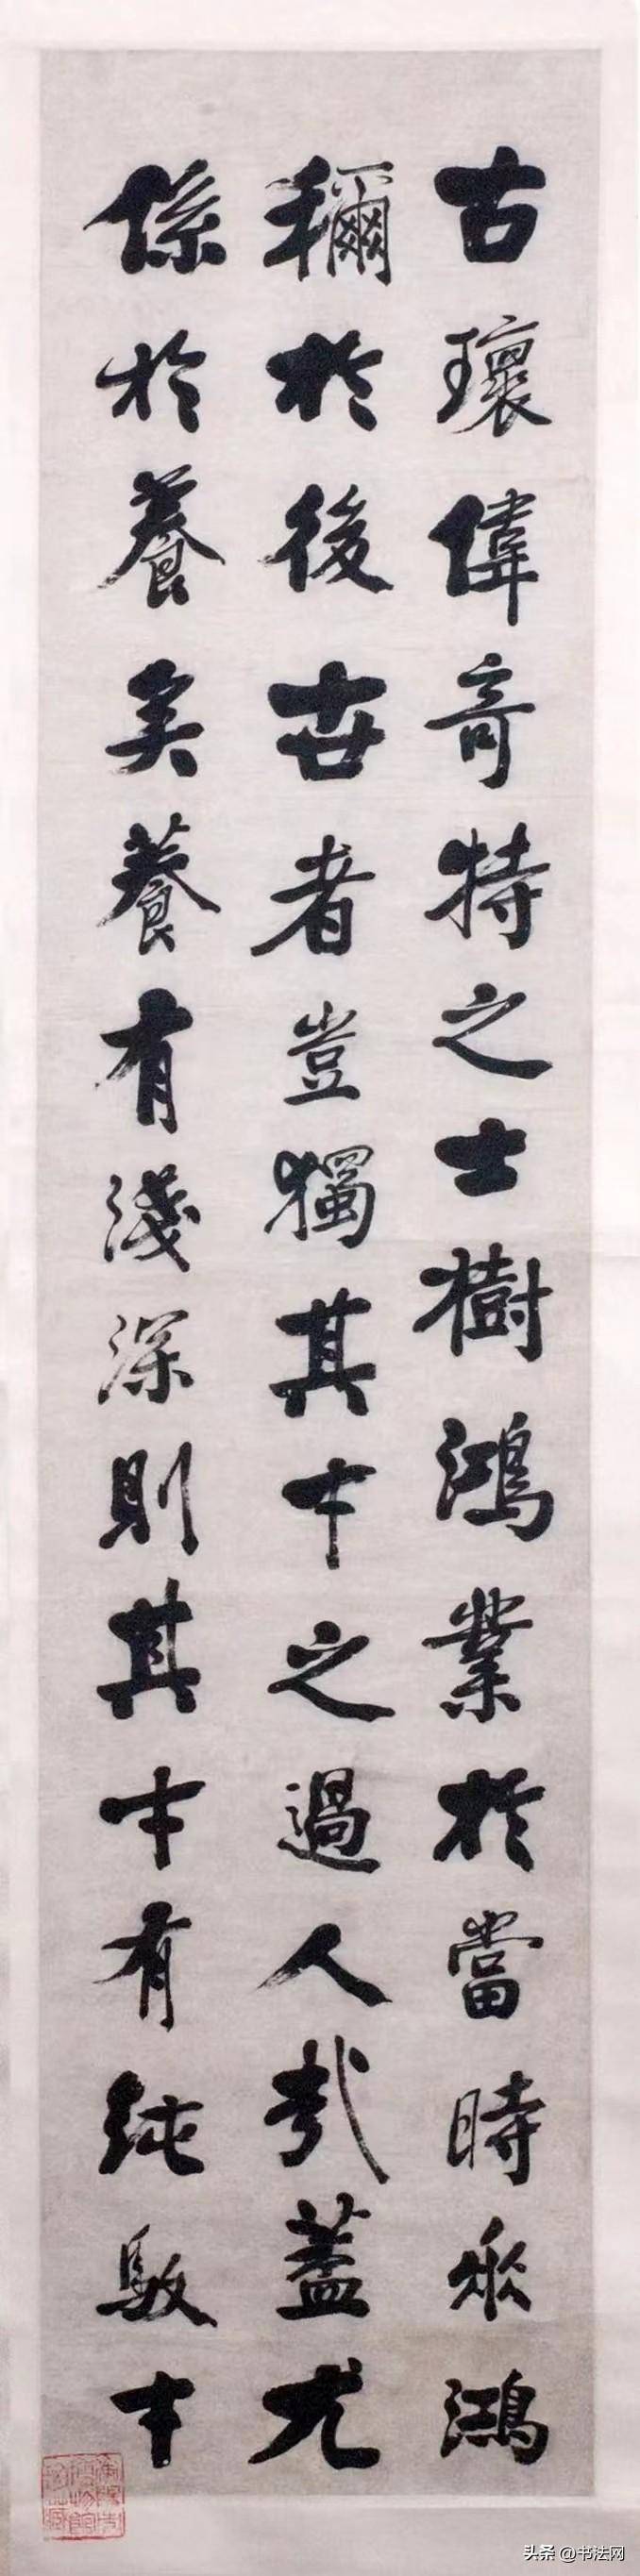 古瓌偉奇特之士樹鴻業於當時鴻
穪於後世者豈獨其才之過人哉蓋尤
係於養矣養有淺深則其才有純駁才
头条 @书法网